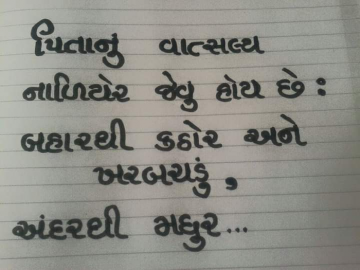 પિતાનુ વાત્સલ્ય
નાળિયેર જેવુ હોય છે :
બહારથી કઠોર અને
ખરબચડું ,
અંદરથી મધુર...